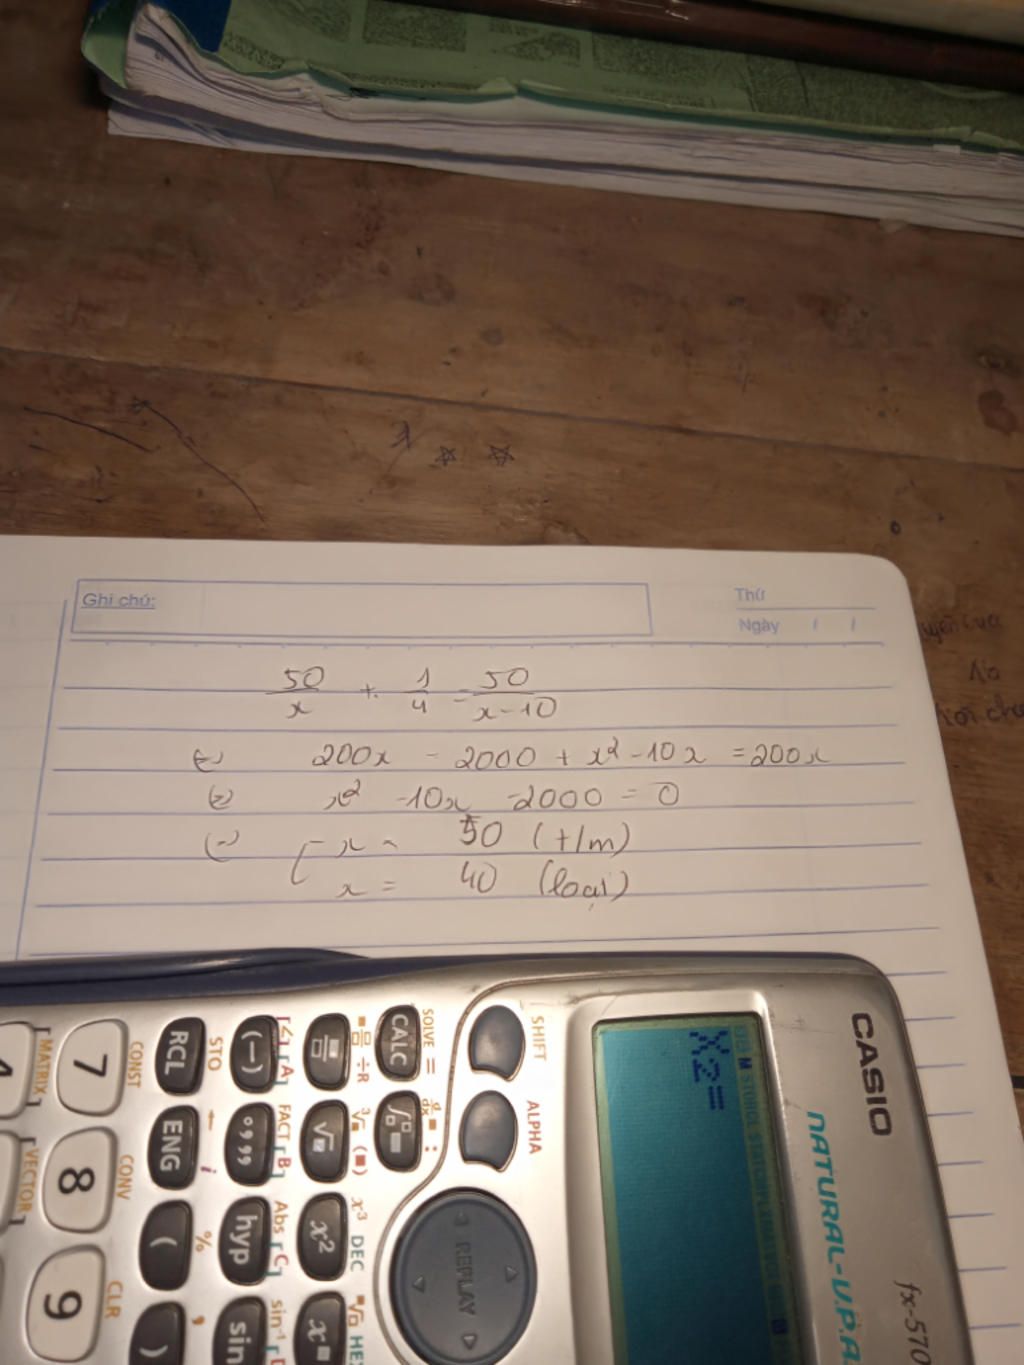 Ghi chú:
Thứ
Ngày / /
50/x + 1/4 = 50/(x-10)
(=) 200x - 2000 + x² - 10x = 200x
(=) x² - 10x - 2000 = 0
(=) [ x = 50 (t/m)
x = 40 (loại)
CASIO
NATURAL-V.P.A
fx-570
X2=
SHIFT
ALPHA
REPLAY
SOLVE =
CALC
d/dx :
∫
÷R
³√ (■)
√
x³ DEC
x²
HEX
∠ A
(−)
FACT B
° ' "
Abs C
hyp
sin⁻¹
sin
STO
RCL
i
ENG
%
(
,
)
CONST
7
CONV
8
CLR
9
MATRIX
4
VECTOR